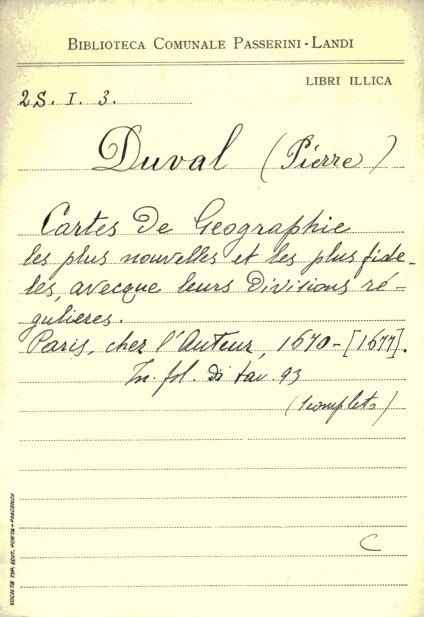 BIBLIOTECA COMUNALE PASSERINI-LANDI
LIBRI ILLICA
2S. I. 3.
Duval (Pierre)
Cartes De Geographie
les plus nouvelles et les plus fide-
les, avecque leurs Divisions ré-
gulieres.
Paris, chez l'Auteur, 1670-[1677].
In. fol. di tav. 93
(
C
SOCIETÀ TIP. EDIT. PORTA - PIACENZA